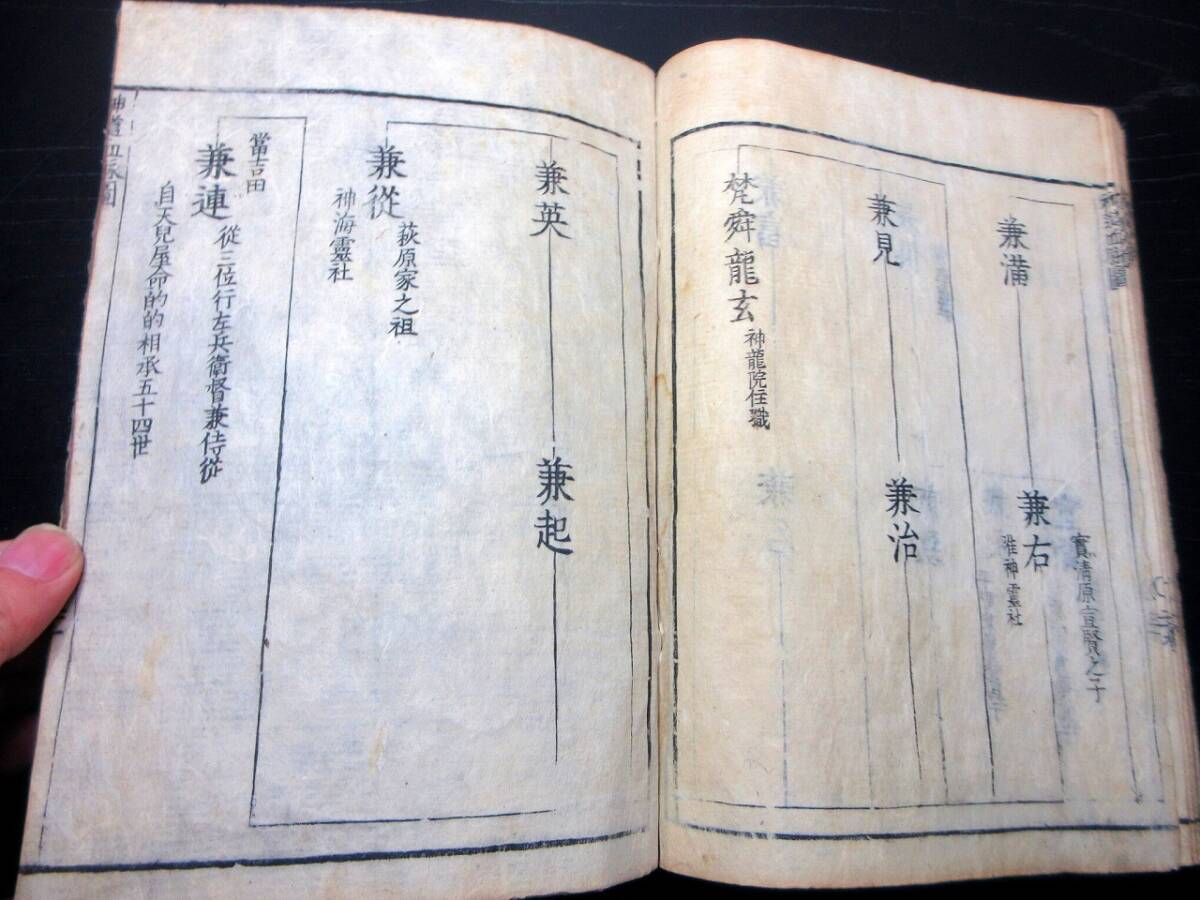 兼満
實清原宣賢之子
兼右
唯神靈社
兼見
兼治
梵舜龍玄
神龍院住職
兼英
兼起
兼從
萩原家之祖
神海靈社
當吉田
兼連
從三位行左兵衛督兼侍從
自天兒屋命的的相承五十四世